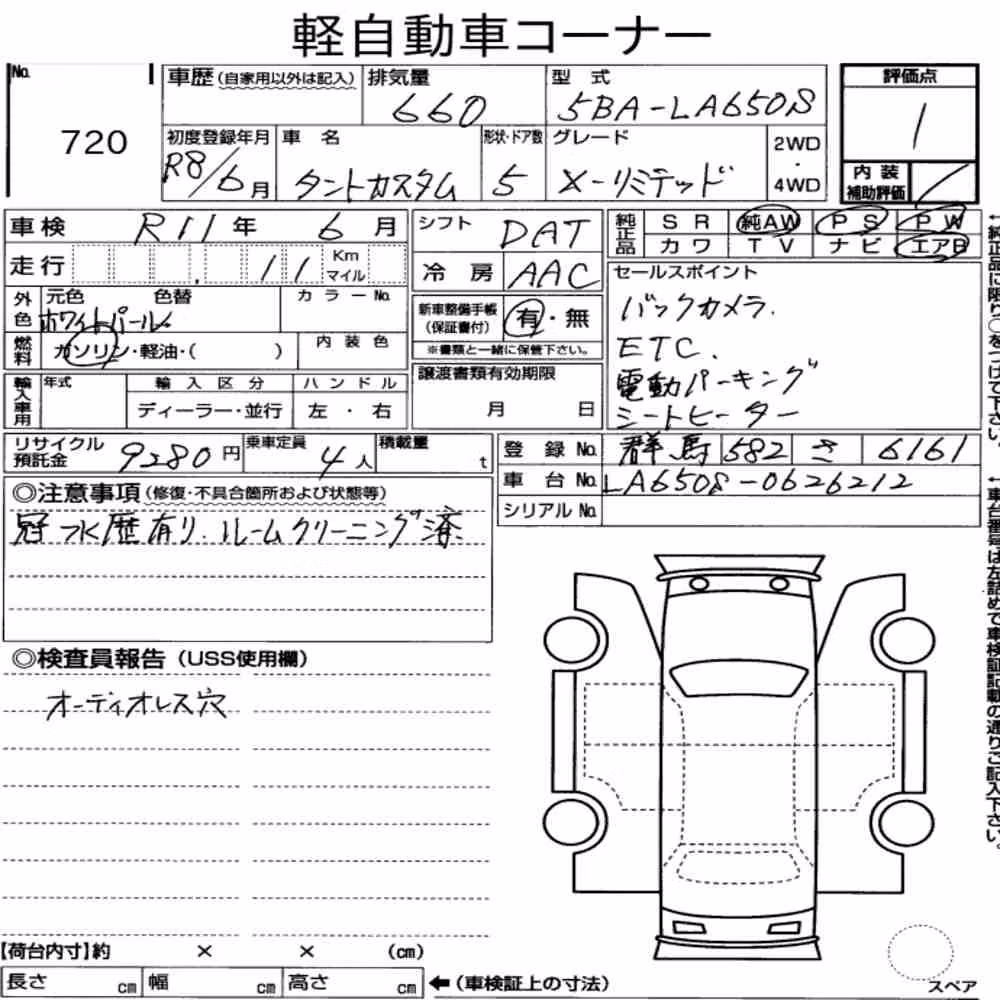 軽自動車コーナー
No. 720
車歴 (自家用以外は記入) 排気量 660 型式 5BA-LA650S
初度登録年月 R8/6月 車名 タントカスタム 形状・ドア数 5 グレード X-リミテッド 2WD・4WD
評価点 1
内装補助評価 /
車検 R11年 6月
走行 11 Km マイル
外色 元色 ホワイトパール 色替 カラーNo.
燃料 ガソリン・軽油・( ) 内装色
輸入車用 年式 輸入区分 ディーラー・並行 ハンドル 左・右
シフト DAT
冷房 AAC
新車整備手帳(保証書付) 有・無
※書類と一緒に保管下さい。
譲渡書類有効期限
月 日
純正品 SR 純AW PS PW
カワ TV ナビ エアB
セールスポイント
バックカメラ.
ETC.
電動パーキング
シートヒーター
←純正品に限り○をつけて下さい。
リサイクル預託金 9280円 乗車定員 4人 積載量 t
登録No. 群馬 582 さ 6161
車台No. LA650S-0626212
シリアルNo.
←車台番号は左詰めで車検証記載の通りご記入下さい。
◎注意事項 (修復・不具合箇所および状態等)
冠水歴有り.ルームクリーニング済
◎検査員報告 (USS使用欄)
オーディオレス穴
【荷台内寸】約 × × (cm)
長さ cm 幅 cm 高さ cm ←(車検証上の寸法)
スペア